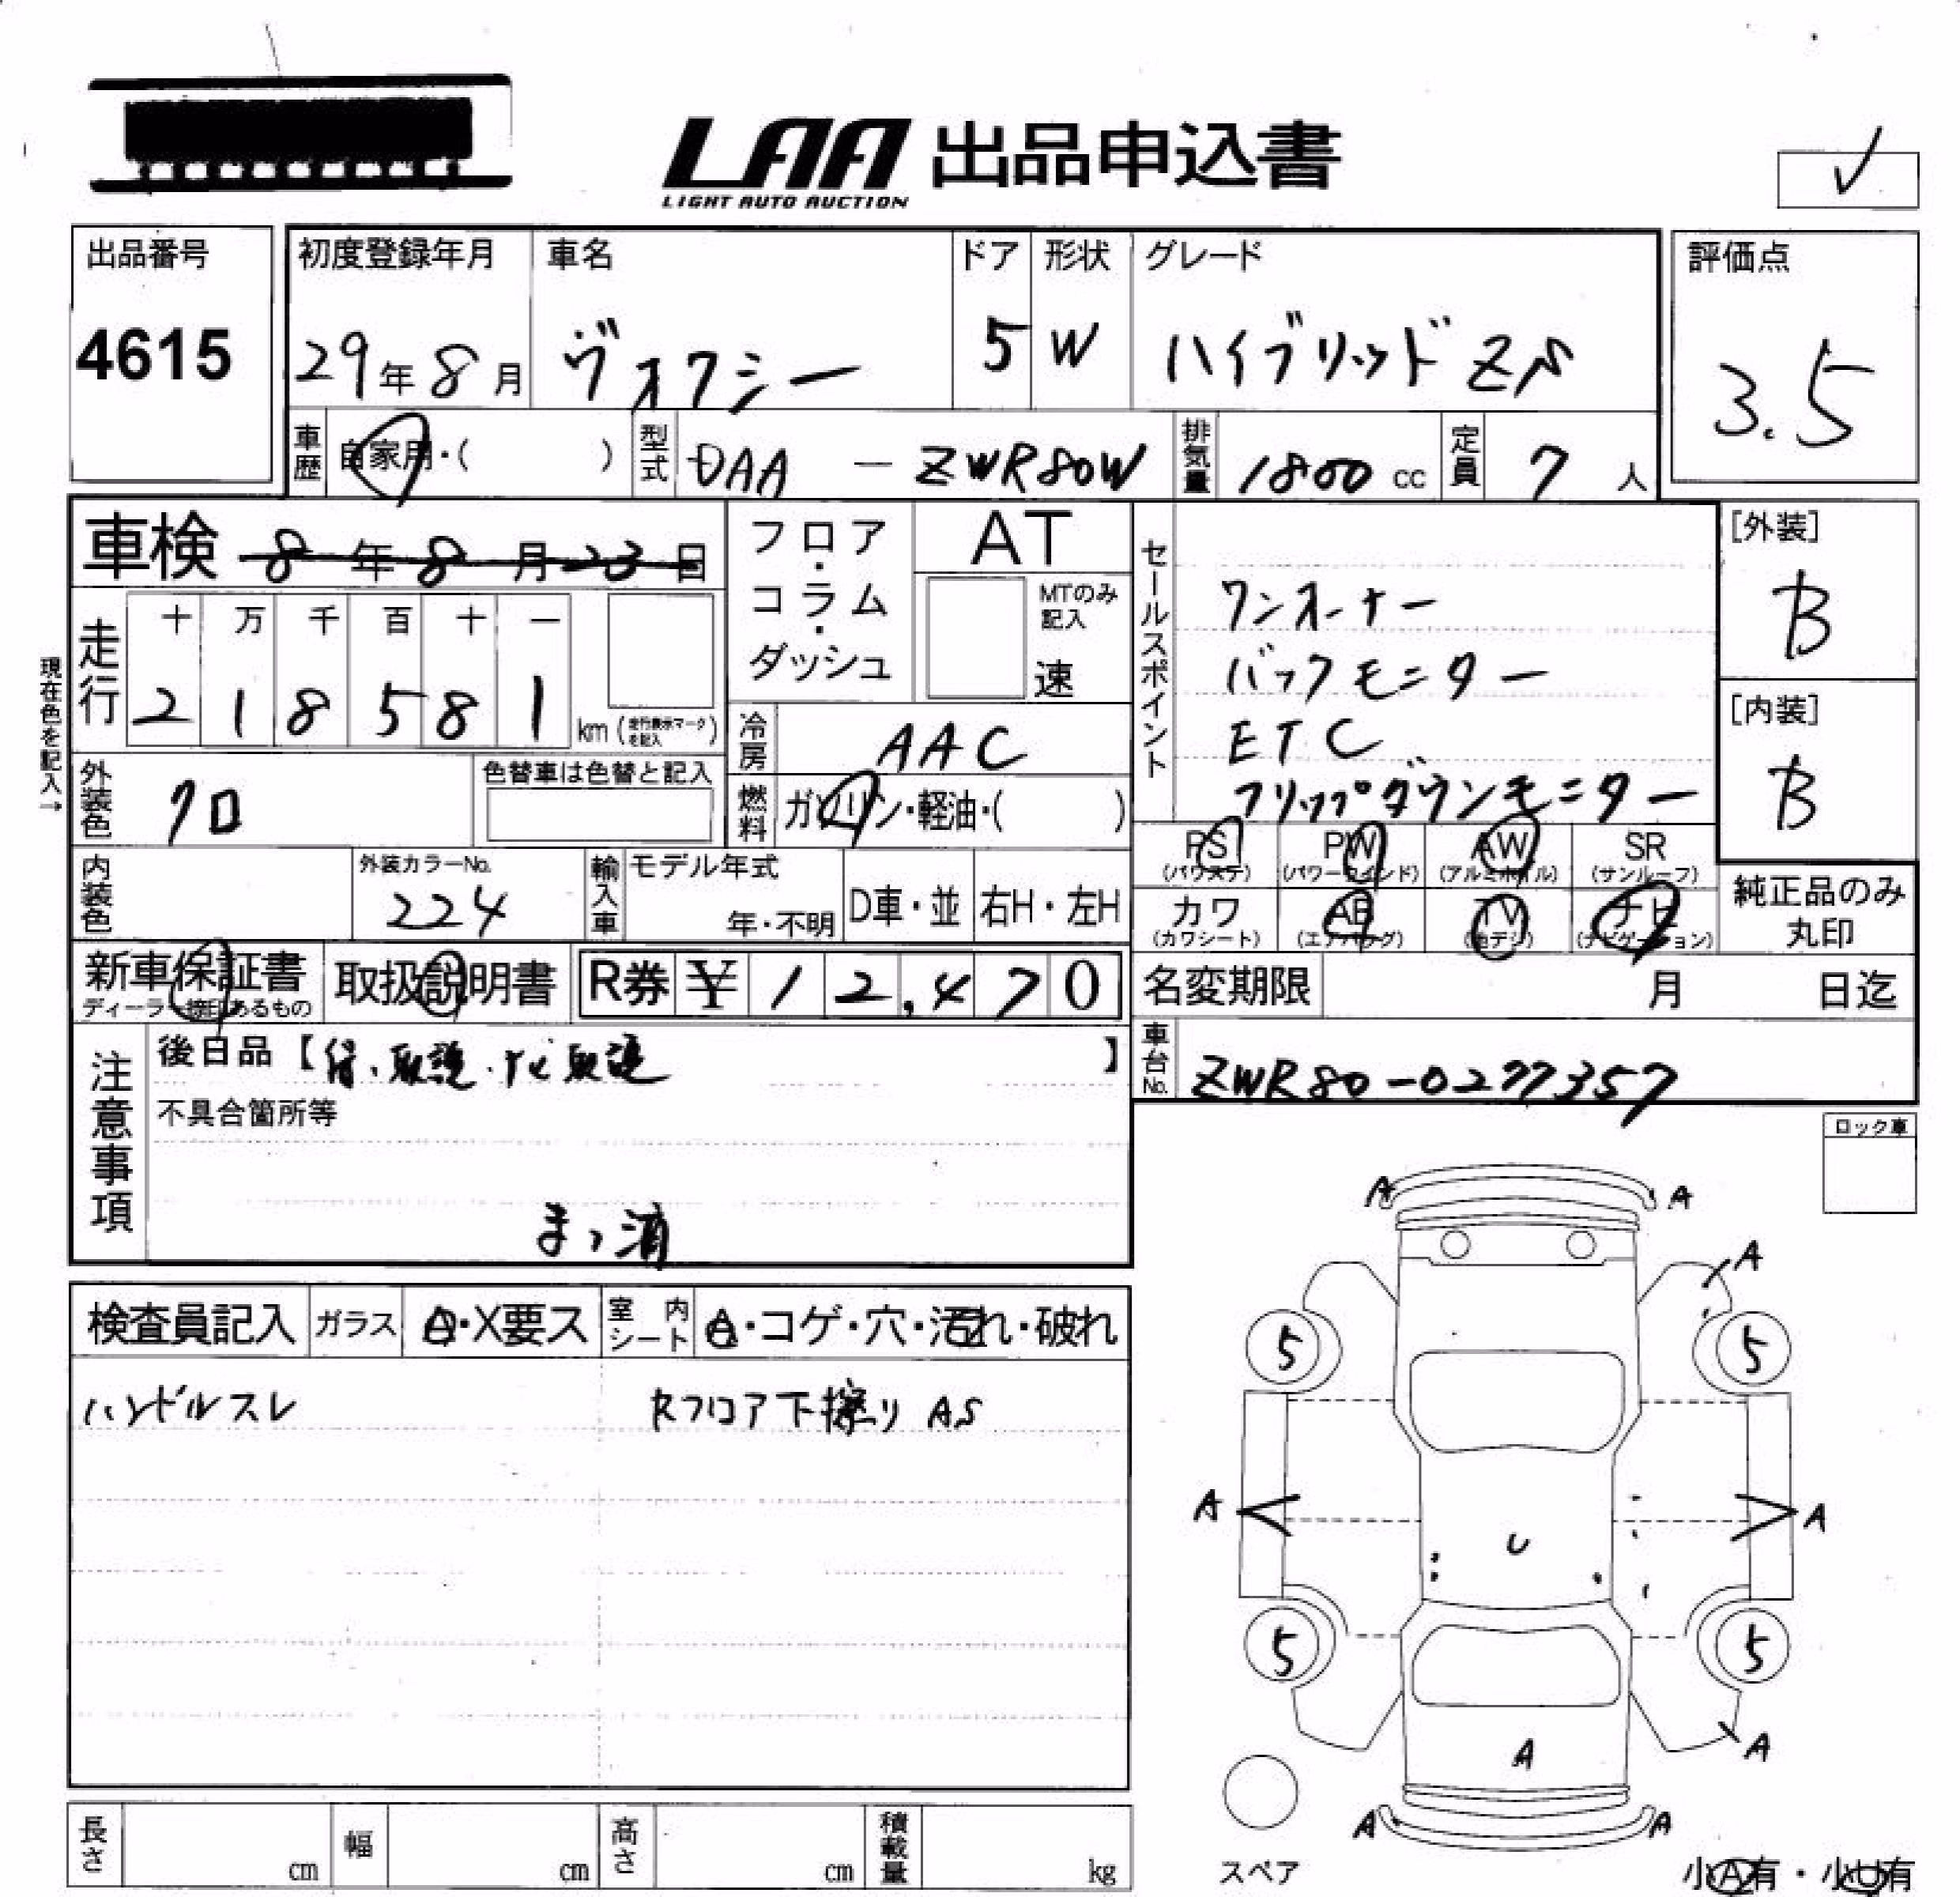 LAA 出品申込書
LIGHT AUTO AUCTION
✓
出品番号
4615
初度登録年月
29年8月
車名
ヴォクシー
ドア
5
形状
W
グレード
ハイブリッドZS
評価点
3.5
車歴
自家用・( )
型式
DAA - ZWR80W
排気量
1800 cc
定員
7人
車検 8年8月23日
フロア・コラム・ダッシュ
AT
MTのみ記入
速
セールスポイント
ワンオーナー
バックモニター
ETC
フリップダウンモニター
[外装]
B
[内装]
B
現在色を記入→
走行
十 万 千 百 十 一
2 1 8 5 8 1 km (走行表示マークを記入)
冷房
AAC
外装色
クロ
色替車は色替と記入
燃料
ガソリン・軽油・( )
PS (パワステ)
PW (パワーウインド)
AW (アルミホイル)
SR (サンルーフ)
カワ (カワシート)
AB (エアバッグ)
TV (地デジ)
ナビ (ナビゲーション)
純正品のみ丸印
内装色
外装カラーNo.
224
輸入車
モデル年式
年・不明
D車・並
右H・左H
新車保証書
ディーラー捺印あるもの
取扱説明書
R券 ¥ 12,470
名変期限 月 日迄
注意事項
後日品【保、取説、ナビ取説】
不具合箇所等
まっ消
車台No.
ZWR80-0277357
ロック車
検査員記入
ガラス
A・X要ス
室内シート
A・コゲ・穴・汚れ・破れ
ハンドルスレ
Rフロア下擦り AS
A A
A
5 5
A A
U
5 5
A
A
A A
スペア
小A有・小U有
長さ cm
幅 cm
高さ cm
積載量 kg